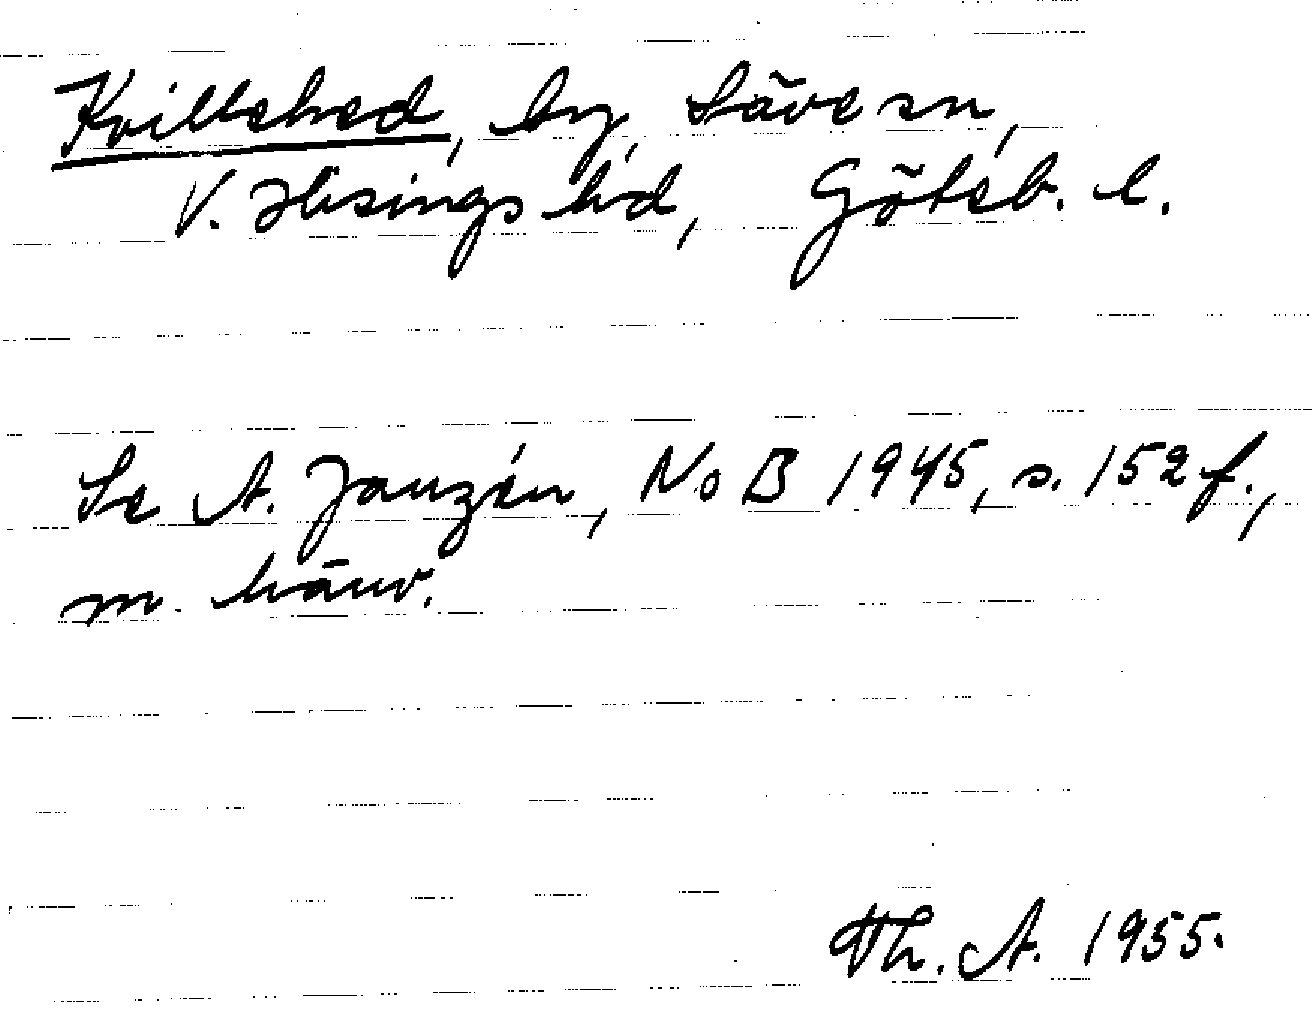 Kvillehed, by, Säve sn,
V. Hisings hd, Göteb. l.
Se A. Janzén, NoB 1945, s. 152 f.,
m. hänv.
Th. A. 1955.